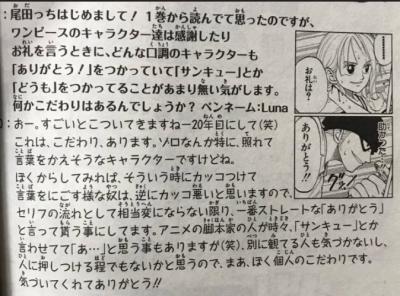 :尾田っちはじめまして！1巻から読んでて思ったのですが、
ワンピースのキャラクター達は感謝したり
お礼を言うときに、どんな口調のキャラクターも
「ありがとう！」をつかっていて「サンキュー」とか
「どうも」をつかってることがあまり無い気がします。
何かこだわりはあるんでしょうか？ペンネーム:Luna
:おー。すごいとこついてきますねー20年目にして(笑)
これは、こだわり、あります。ゾロなんか特に、照れて
言葉をかえそうなキャラクターですけどね。
ぼくからしてみれば、そういう時にカッコつけて
言葉をにごす様な奴は、逆にカッコ悪いと思いますので、
セリフの流れとして相当変にならない限り、一番ストレートな「ありがとう」
と言って貰う事にしてます。アニメの脚本家の人が時々、「サンキュー」とか
言わせてて「あ…」と思う事もありますが(笑)、別に観てる人も気づかないし、
人に押しつける程でもないかと思うので、まあ、ぼく個人のこだわりです。
気づいてくれてありがとう!!
お礼は？
助かった
ありがとう！
グッ